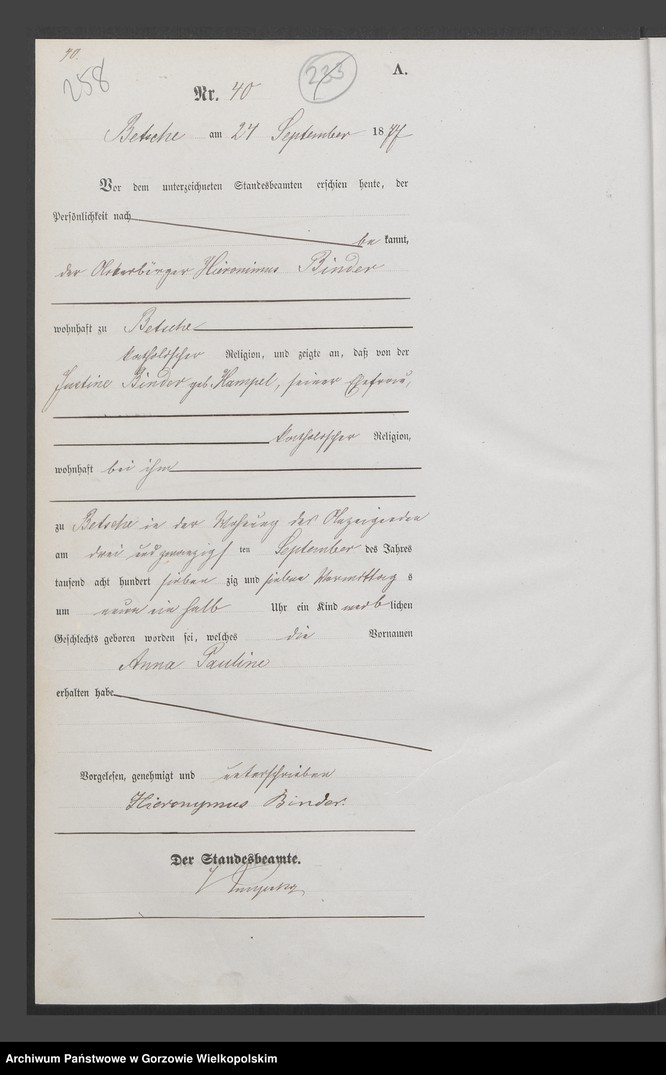 40.
258
233
A.
Nr. 40
Betsche am 24 September 1877
Vor dem unterzeichneten Standesbeamten erschien heute, der
Persönlichkeit nach
be kannt,
der Ackerbürger Hieronimus Binder
wohnhaft zu Betsche
katholischer Religion, und zeigte an, daß von der
Justine Binder geb. Hampel, seiner Ehefrau,
katholischer Religion,
wohnhaft bei ihm
zu Betsche in der Wohnung des Anzeigenden
am drei und zwanzigsten September des Jahres
tausend acht hundert sieben zig und sieben Vormittag s
um neun ein halb Uhr ein Kind weib lichen
Geschlechts geboren worden sei, welches die Vornamen
Anna Pauline
erhalten habe
Vorgelesen, genehmigt und unterschrieben
Hieronymus Binder.
Der Standesbeamte.
Archiwum Państwowe w Gorzowie Wielkopolskim